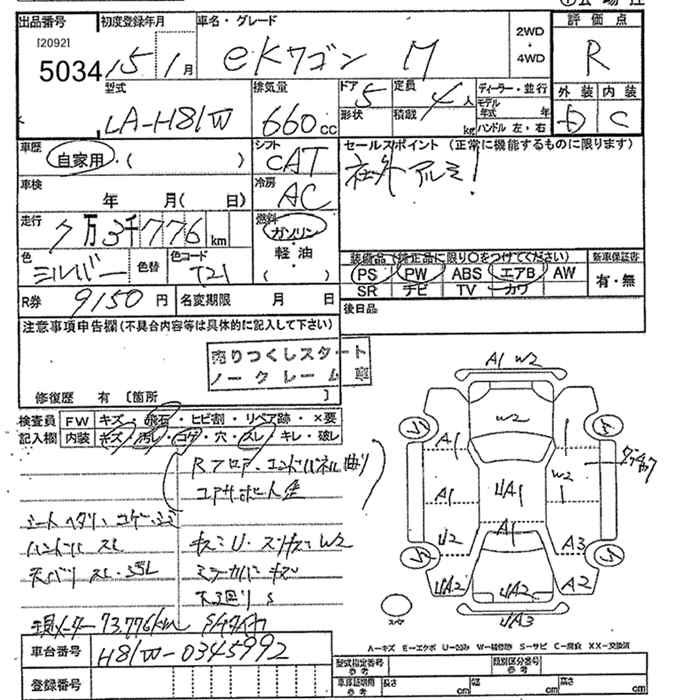 出品番号 初度登録年月 車名・グレード 2WD・4WD 評価点
[2092]
5034 15 1月 eKワゴン M R
型式 排気量 ドア 定員 ディーラー・並行 外装 内装
LA-H81W 660cc 5 4人 形状 積載 kg モデル年式 年 ハンドル 左・右 D C
車歴 自家用・( ) シフト CAT セールスポイント (正常に機能するものに限ります)
車検 年 月( 日) 冷房 AC 社外アルミ!
走行 7万3千776km 燃料 ガソリン 軽油 ( )
色 シルバー 色替 色コード T21
装備品 (純正品に限り○をつけてください) 新車保証書
PS PW ABS エアB AW 有・無
SR ナビ TV カワ
R券 9150円 名変期限 月 日 後日品
注意事項申告欄 (不具合内容等は具体的に記入して下さい)
売りつくしスタート
ノークレーム車
修復歴 有 [箇所 ]
検査員記入欄 FW キズ・飛石・ヒビ割・リペア跡・×要
内装 キズ・汚レ・コゲ・穴・スレ・キレ・破レ
Rフロア・エンドパネル曲り
コアサポート歪
シートヘタリ・コゲ・シミ
ハンドル スレ キズミU・スリキズミW2
天バリ スレ・汚レ ミラーカバーキズ
下廻りS
現メーター73,776km
A1 W2
W2
A1
W2
A1
UA1
U2
A1
A3
UA2
UA2
A2
UA3
スペア
A-キズ E-エクボ U-凹み W-補修跡 S-サビ C-腐食 XX-交換済
車台番号 H81W-0345992
型式指定番号 参考 類別区分番号 参考
登録番号 車庫証明用 参考 長さ cm 幅 cm 高さ cm